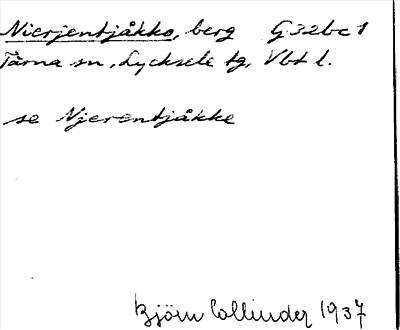 Nierjentjåkko, berg G32bc1
Tärna sn, Lycksele tg, Vbt l.
se Njerentjåkke
Björn Collinder 1937